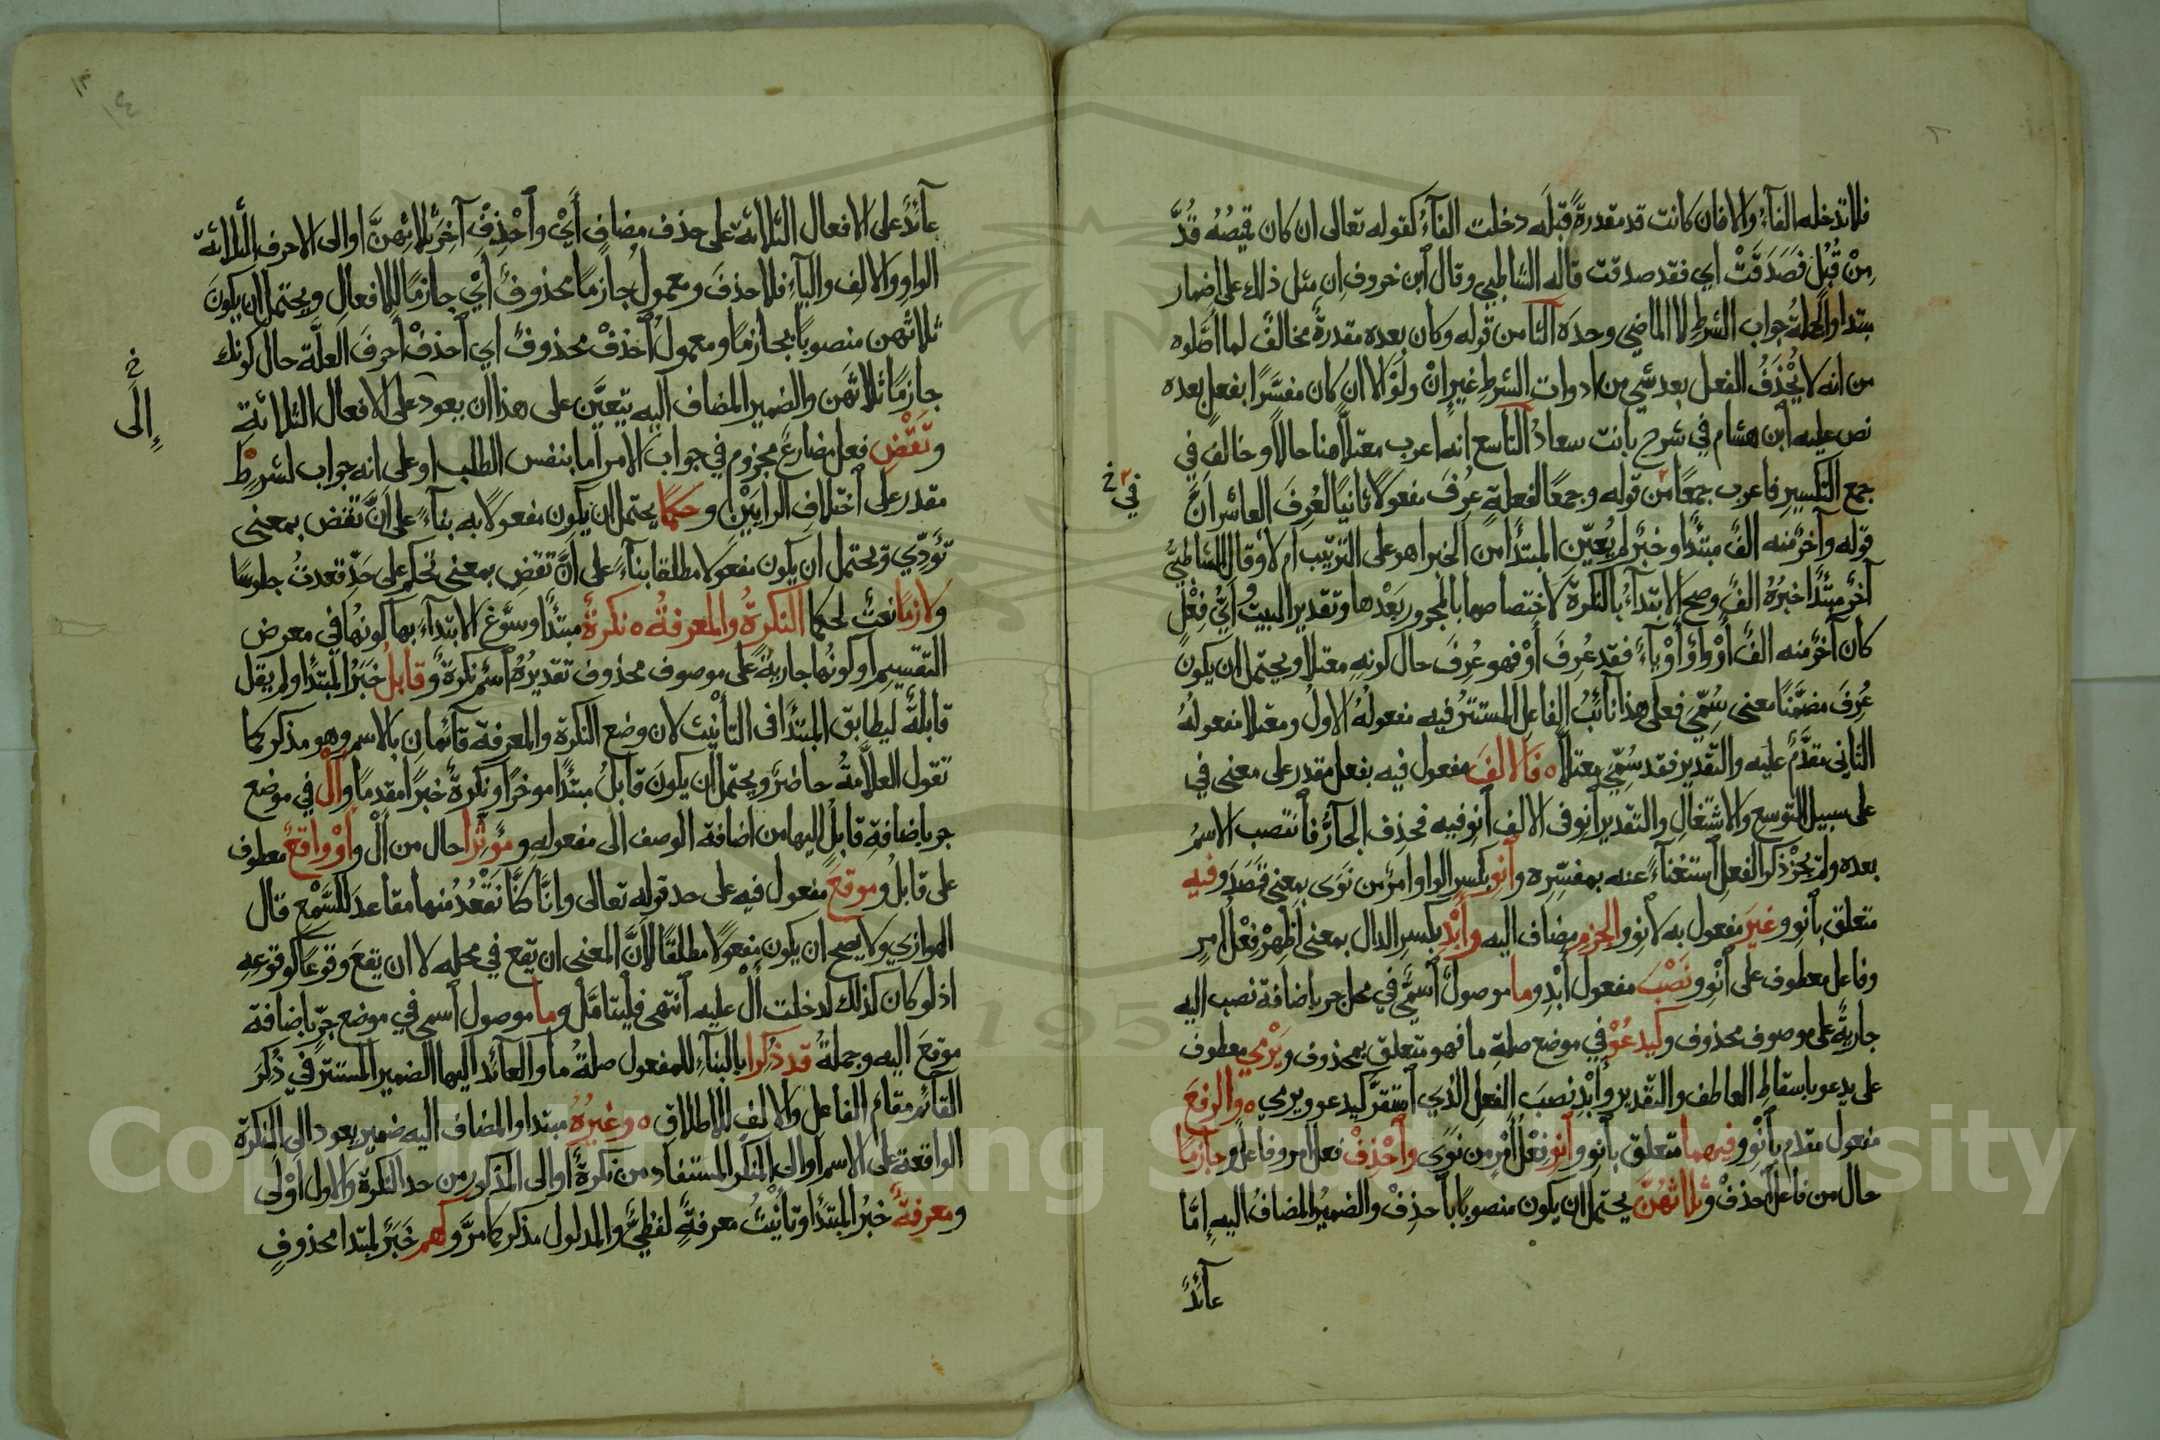 فلا تدخله الفآءُ والا فان كانت قد مقدرةً قبلَه دخلت الفآءُ كقوله تعالى ان كان قميصُهُ قُدَّ
مِنْ قُبُلٍ فَصَدَقَتْ اي فقد صدقت قاله الشاطبي وقال ٱبن خروف اِن مثل ذلك على اضمار
مبتدا والجملةُ جواب الشرطِ لا الماضي وحدَه الثامن قوله وكان بعده مقدرةً مخالفٌ لما اصَّلوه
من انه لا يُحْذَفُ الفعل بعد شي من ادوات الشرط غيرِ انْ ولَوْ الا ان كان مفسَّرًا بفعلٍ بعده
نص عليه ٱبن هشام في شرح بانت سعادُ التاسع انه اعرب معتلًّا هنا حالًا وخالف في
جمع التكسير فاعرب جمعًا من قوله وجمعًا لفعلةٍ عُرِفَ مفعولًا ثانيًا لعُرِفَ العاشر انَّ
في خ
قوله وآخرٌ منه الفٌ مبتدأ وخبرٌ لم يُعيّن المبتدأ من الخبر اهو على الترتيب ام لا وقال الشاطبيُّ
آخرٌ مبتدأ خبرُهُ الفٌ وصح الابتدآءُ بالنكرة لاختصاصها بالمجرور بَعْدها وتقدير البيت ايُّ فِعْلٍ
كان آخرٌ منه الفٌ أوْ واوٌ أوْ يآءٌ فقد عُرِفَ أوْ فهو عُرِفَ حال كونهِ معتلا ويحتمل ان يكون
عُرِفَ مضمَّنًا معنى سُمّيَ فعلى هذا نآئبُ الفاعل المستترُ فيه مفعولُهُ الاول ومعتلا مفعولهُ
الثاني مقدَّمٌ عليه والتقدير فقد سُمّيَ معتلاً ه فالالفَ مفعول فيه بفعل مقدر على معنى في
على سبيل التوسع والاشتغال والتقدير ٱنوِ في الالف ٱنوِ فيه فحذف الجآرُّ فٱنتصب الاسمُ
بعده ولم يجُزْ ذكر الفعل ٱستغنآءً عنه بمفسّرِه وٱنو بكسر الواو امرٌ من نَوَى بمعنى قَصَدَ وفيه
متعلق بٱنوِ وغيرَ مفعول به لانوِ والجزمِ مضاف اليه وأَبْدِ بكسر الدال بمعنى أظهِرْ فِعْلُ امرٍ
وفاعل معطوف على ٱنْوِ ونَصْبَ مفعول أبْدِ وما موصولٌ ٱسميٌّ في محل جر باضافة نصب اليه
جاريةٌ على موصوف محذوف وكيدعُوْ في موضع صلةِ ما فهو متعلق بمحذوف ويَرْمي معطوف
على يدعو باسقاط العاطف والتقدير وأبْدِ نصبَ الفعل الذي ٱستقرَّ كيدعو ويرمي ه والرفعَ
مفعول مقدم بٱنْوِ وفيهما متعلق بٱنوِ وٱنوِ فِعْلُ أمْرٍ من نَوَى وٱحْذِفْ فعل امر وفاعل وجازمًا
حال من فاعل ٱحذفْ وثلاثَهُنَّ يحتمل ان يكون منصوبًا بٱحذِفْ والضميرُ المضافُ اليهِ إمَّا
عآئدٌ
١٣
١٤
عآئدٌ على الافعال الثلاثة على حذف مضاف أيْ وٱحْذِفْ آخرَ ثلاثِهنَّ او الى الاحرف الثلاثة
الواوِ والالفِ واليآءِ فلا حذفَ ومعمولُ جازمًا محذوفٌ أيْ جازمًا للافعالِ ويحتمل ان يكونَ
ثلاثَهن منصوبًا بجازمًا ومعمولُ ٱحْذفْ محذوفٌ اي ٱحذفْ أحرفَ العلَّة حال كونك
جازمًا ثلاثَهن والضمير المضاف اليه يتعيَّن على هذا ان يعود على الافعال الثلاثة
إلى خ
وتَقْضِ فعل مضارع مجزوم في جواب الامر اما بنفس الطلب او على انه جواب لشرطٍ
مقدر على ٱختلاف الرايَيْن وحكمًا يحتمل ان يكون مفعولًا به بنآءً على أنَّ تقض بمعنى
تؤدّي ويحتمل ان يكون مفعولا مطلقا بنآءً على أنَّ تقض بمعنى تحكم على حَدِّ قعدتُ جلوسًا
ولازمًا نعتٌ لحكما النكرةُ والمعرفةُ ه نكرةٌ مبتدأ وسوَّغ الابتدآءَ بها كونُها في معرض
التقسيم او كونُها جاريةً على موصوف محذوف تقديرُهُ ٱسمٌ نكرةٌ وقابلُ خبرُ المبتدا ولم يقل
قابلةٌ ليطابق المبتدأ في التأنيث لان وضع النكرة والمعرفة قآئمان بالاسم وهو مذكر كما
تقول العلّامةُ حاضرٌ ويحتمل ان يكونَ قابلُ مبتدأ موخرًا ونكرةٌ خبرًا مقدمًا وألْ في موضع
جر باضافةِ قابلُ اليها من اضافة الوصف الى مفعوله ومؤثِّرا حال من ألْ وأوْ واقعٌ معطوف
على قابلُ وموقعَ مفعول فيه على حد قوله تعالى وانَّا كنَّا نَقْعُدُ منها مقاعدَ للسَّمْع قال
الهواري ولا يصح ان يكون مفعولًا مطلقًا لأنَّ المعنى ان يقع في محله لا ان يقعَ وقوعًا كوقوعهِ
اذ لو كان كذلك لدخلت ألْ عليه ٱنتهى فليتامَّل وما موصول ٱسمي في موضع جرٍّ باضافة
موقعَ اليه وجملةُ قد ذُكرا بالبنآءِ للمفعول صلةُ ما والعآئد اليها الضمير المستتر في ذُكرَ
القآئم مقام الفاعل والالف للاطلاق ه وغيرُهُ مبتدا والمضاف اليه ضمير يعود الى النكرة
الواقعة على الاسم او الى المنكر المستفاد من نكرةٌ او الى المذكور من حد النكرة والاول أوْلى
ومعرفةٌ خبرُ المبتدأ وتأنيثُ معرفةٌ لفظيٌّ والمدلول مذكر كما مرَّ وكهم خبَرٌ لمبتدا محذوفٍ
Copyright © King Saud University
1957